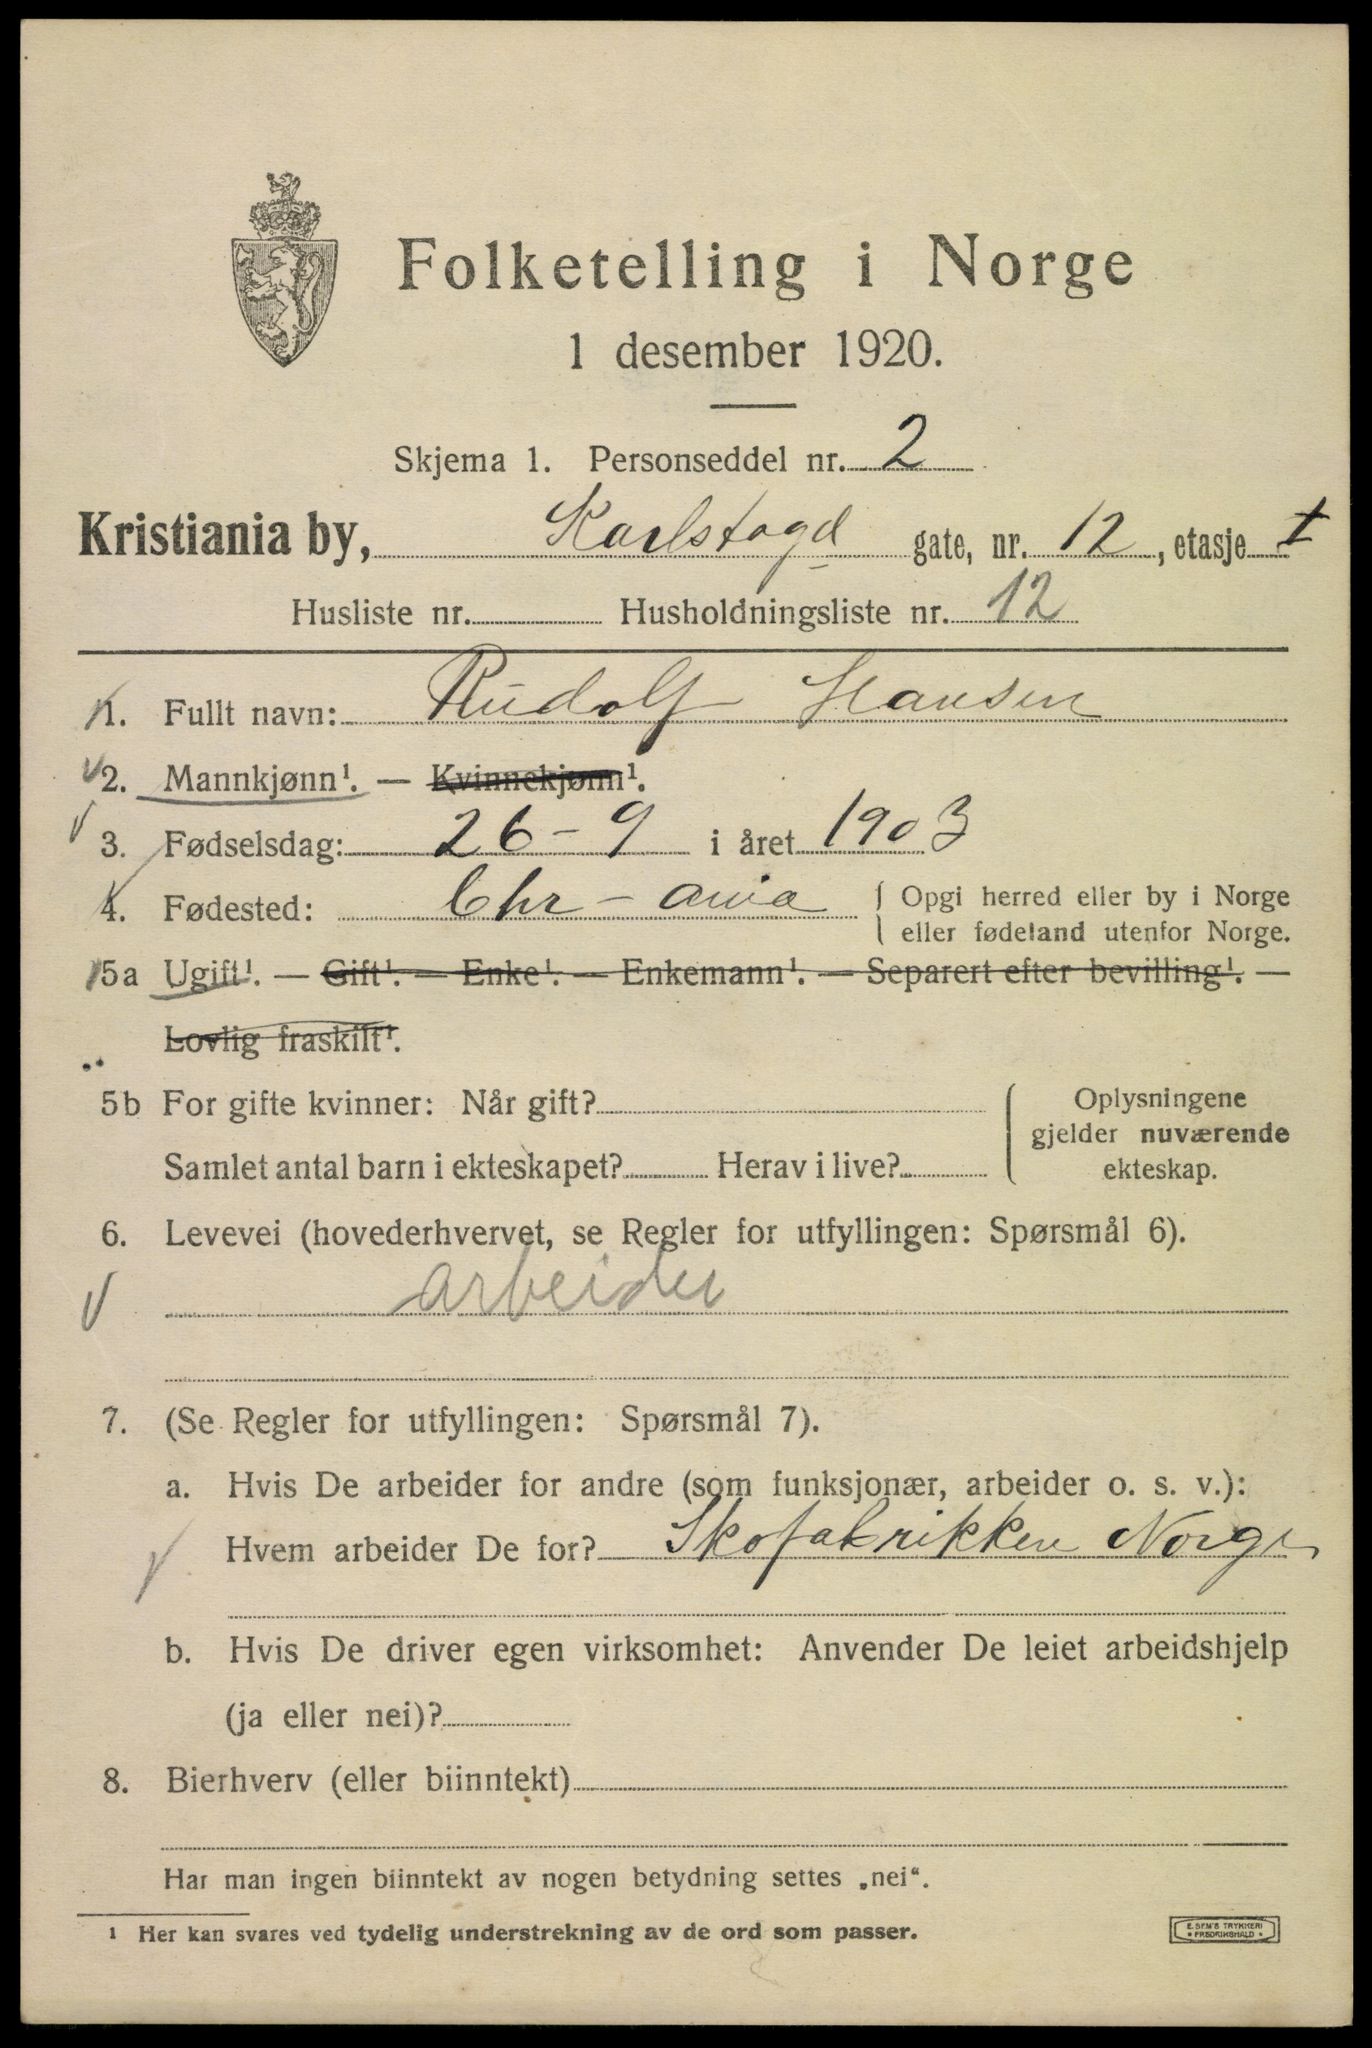 Folketelling i Norge
1 desember 1920.
Skjema 1. Personseddel nr. 2
Kristiania by, Karlstogd gate, nr. 12, etasje I
Husliste nr. Husholdningsliste nr. 12
1. Fullt navn: Rudolf Hansen
2. Mannkjønn¹. — Kvinnekjønn¹.
3. Fødselsdag: 26-9 i året 1903
4. Fødested: Chr-ania Opgi herred eller by i Norge
eller fødeland utenfor Norge.
5a Ugift¹. — Gift¹. — Enke¹. — Enkemann¹. — Separert efter bevilling¹. —
Lovlig fraskilt¹.
5b For gifte kvinner: Når gift? Oplysningene
gjelder nuværende
Samlet antal barn i ekteskapet? Herav i live? ekteskap.
6. Levevei (hovederhvervet, se Regler for utfyllingen: Spørsmål 6).
arbeider
7. (Se Regler for utfyllingen: Spørsmål 7).
a. Hvis De arbeider for andre (som funksjonær, arbeider o. s. v.):
Hvem arbeider De for? Skofabrikken Norge
b. Hvis De driver egen virksomhet: Anvender De leiet arbeidshjelp
(ja eller nei)?
8. Bierhverv (eller biinntekt)
Har man ingen biinntekt av nogen betydning settes „nei“.
¹ Her kan svares ved tydelig understrekning av de ord som passer.
E. SEM'S TRYKKERI
FREDRIKSHALD